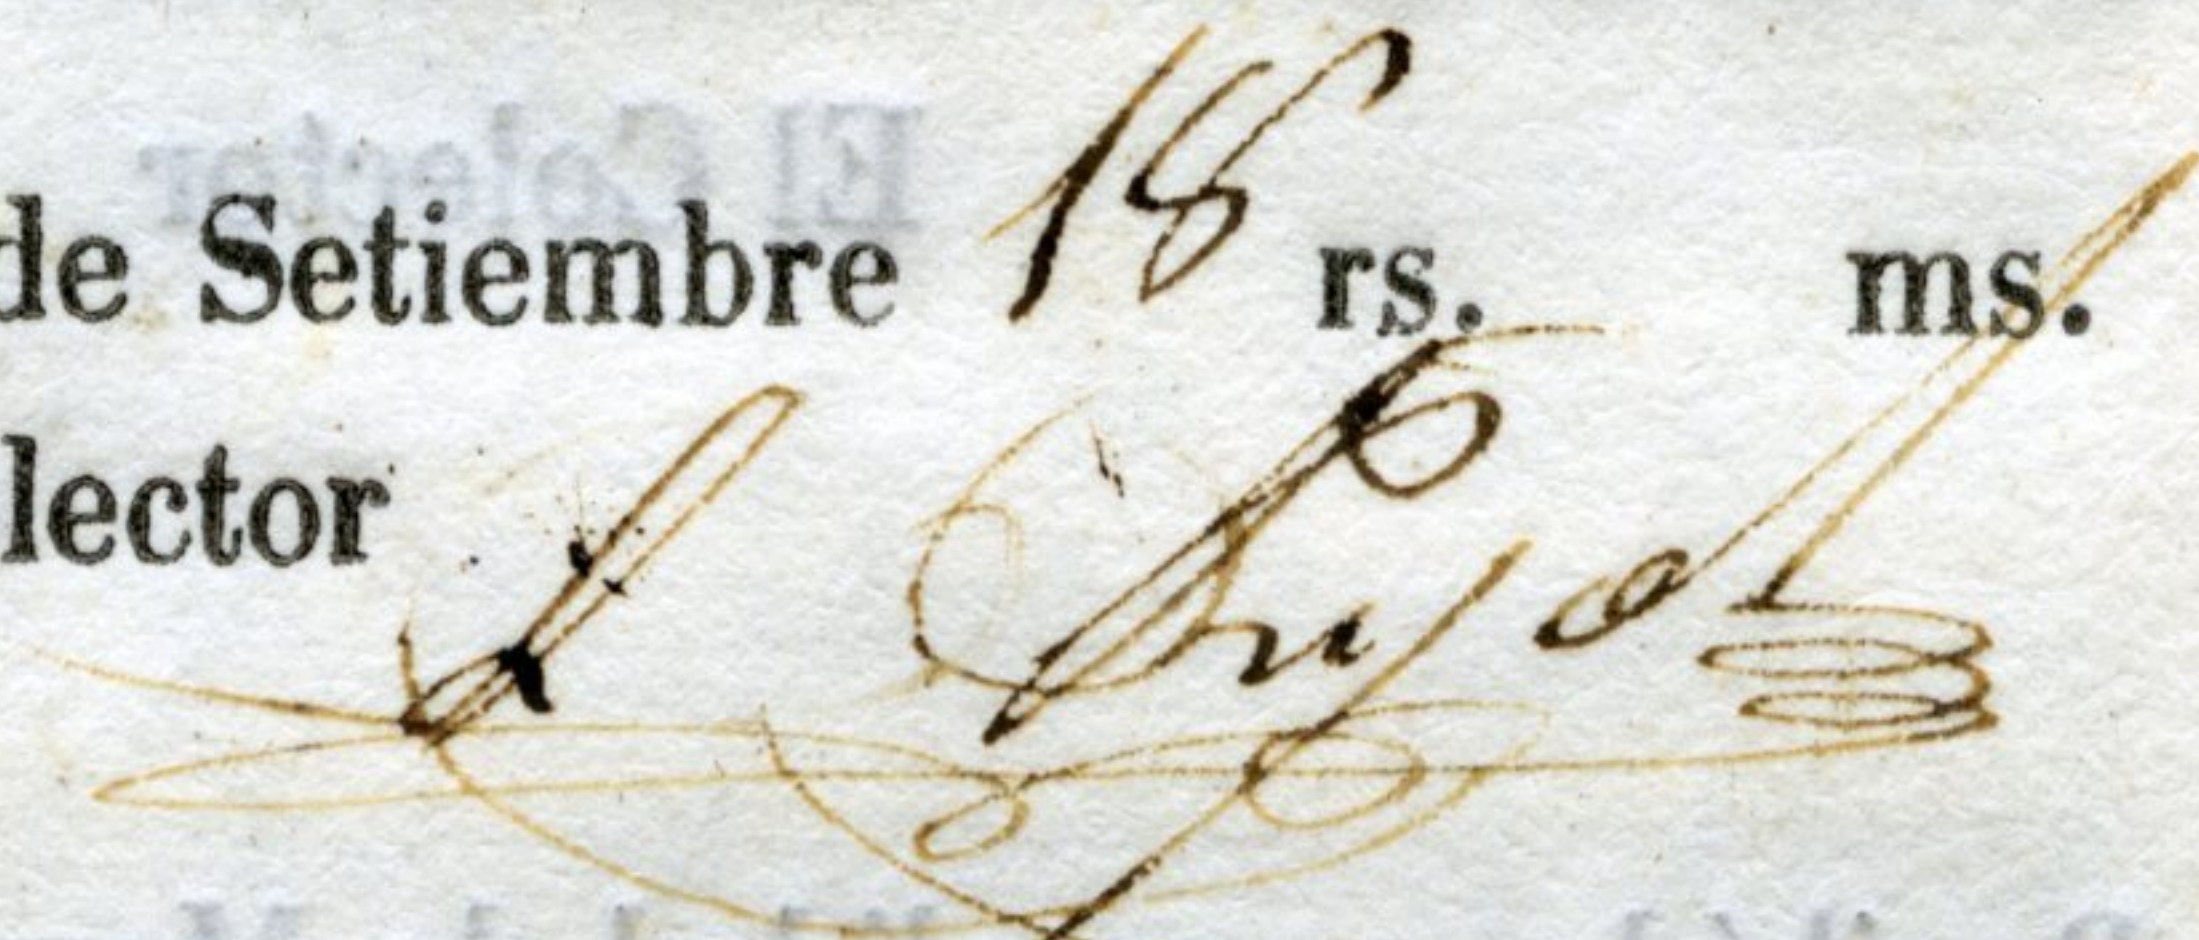 de Setiembre 18 rs. ms.
lector Pujol